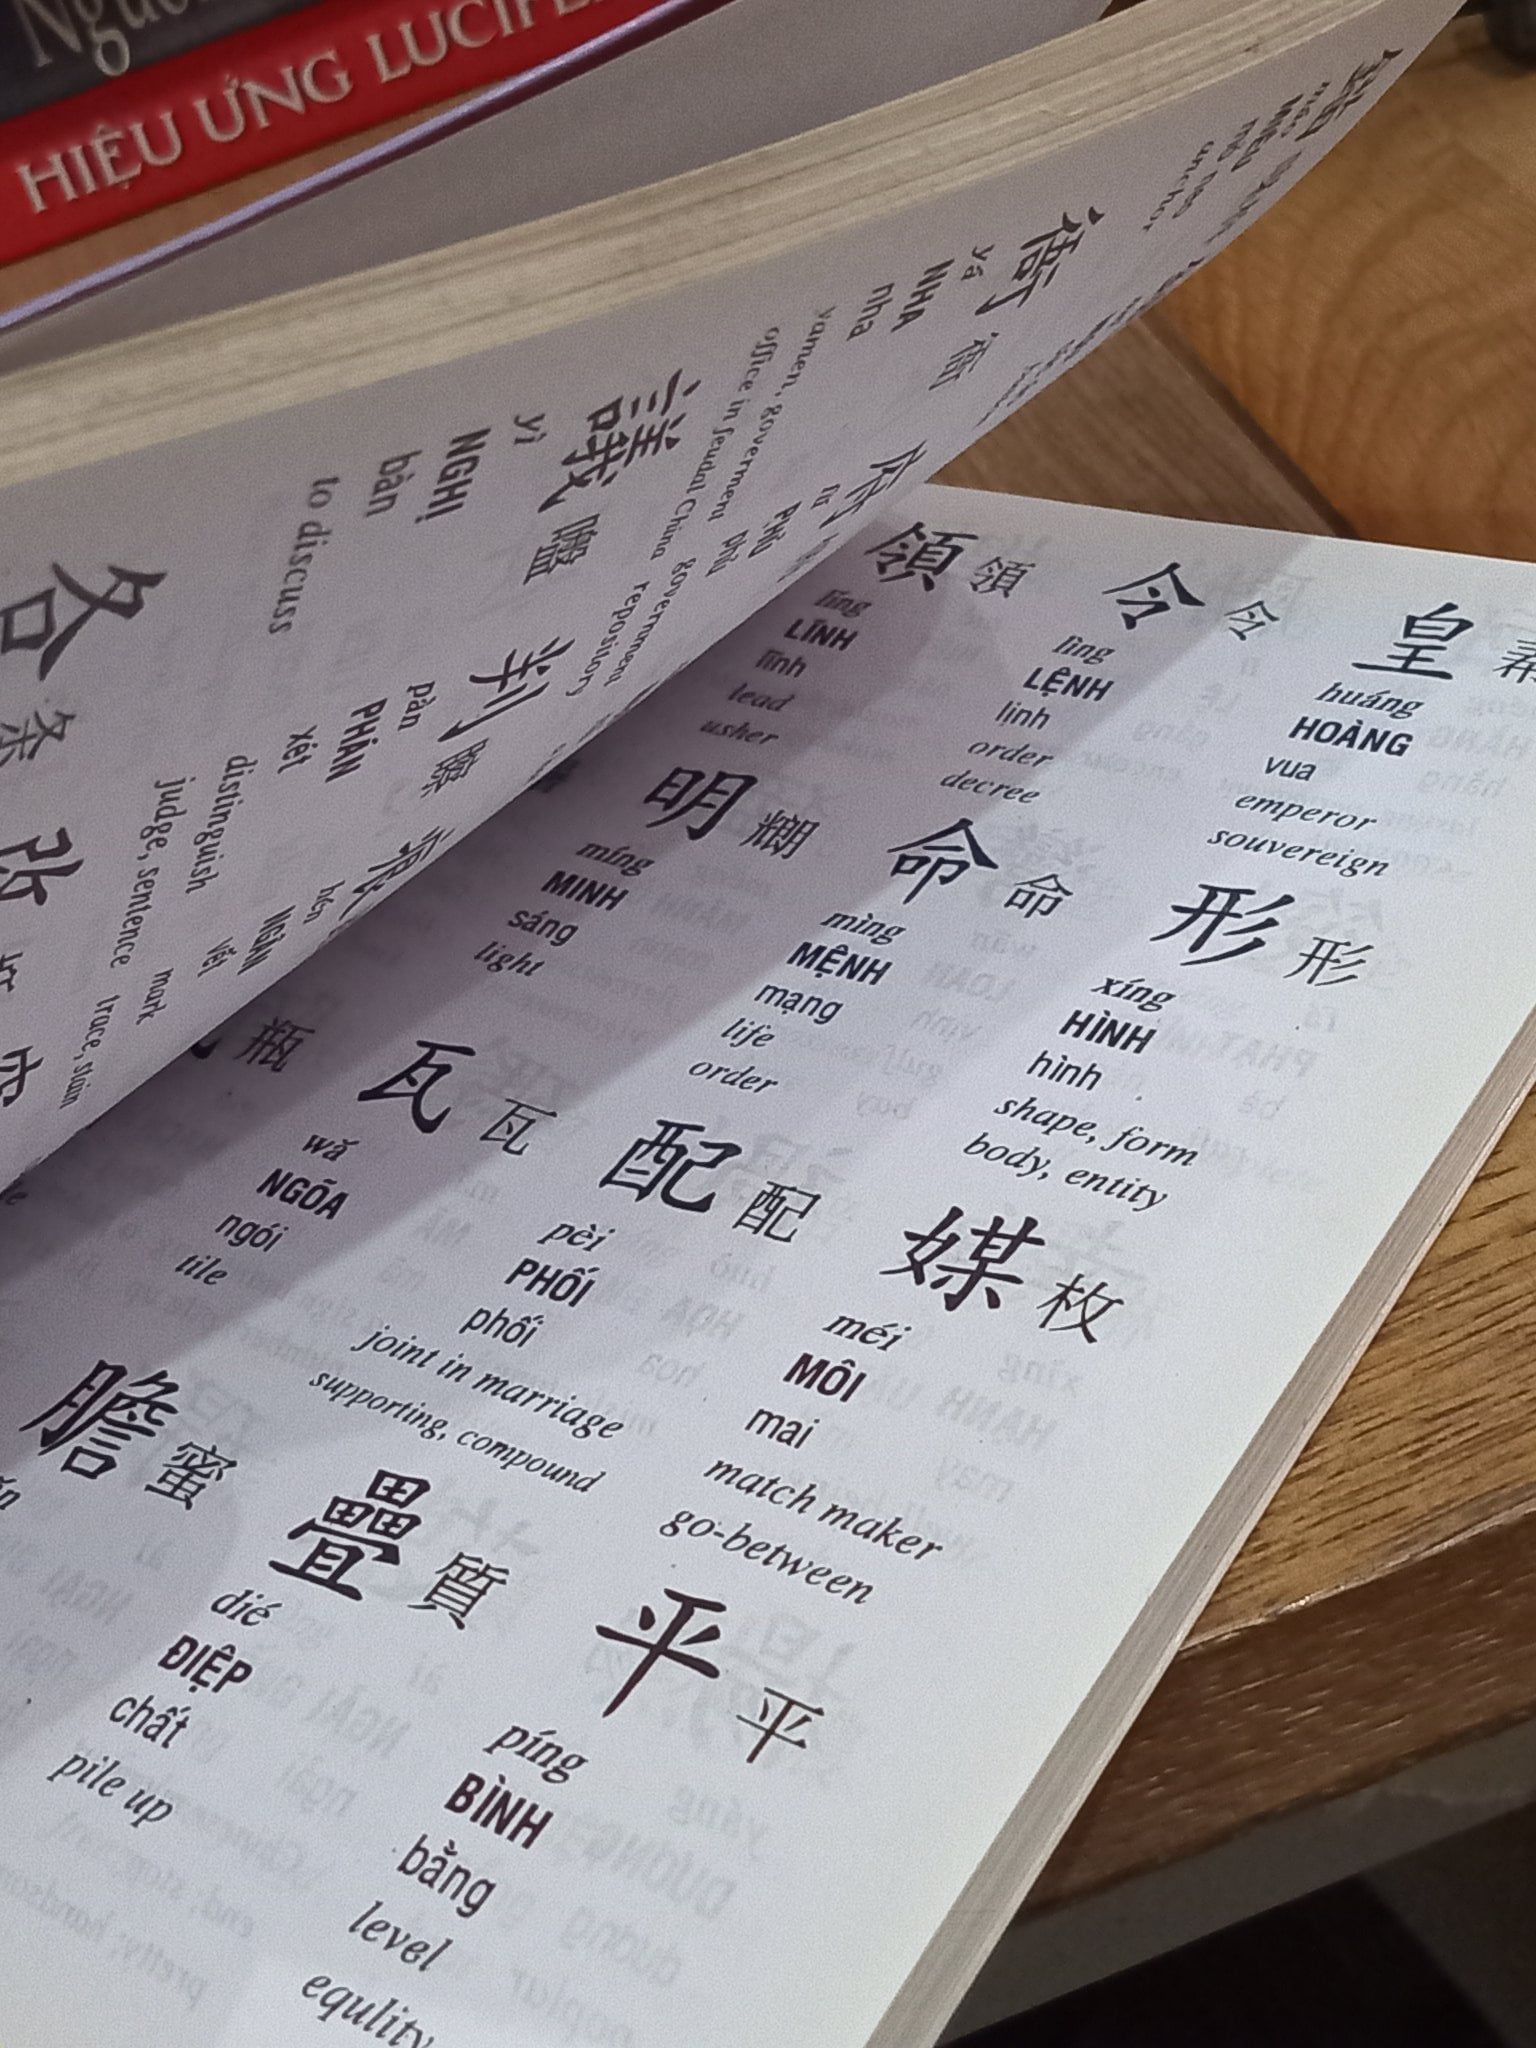 HIỆU ỨNG LUCIFER
anchor
衙 衙
yá
NHA
nha
yamen, government
office in feudal China
議
yì
NGHỊ
bàn
to discuss
PHỦ
phủ
government
repository
判
pàn
PHÁN
xét
distinguish
judge, sentence
hén
NGÂN
vết
mark
trace, stain
名
領 領
lǐng
LĨNH
lĩnh
lead
usher
令 令
lìng
LỆNH
lịnh
order
decree
皇
huáng
HOÀNG
vua
emperor
souvereign
明
míng
MINH
sáng
light
命 命
mìng
MỆNH
mạng
life
order
形 形
xíng
HÌNH
hình
shape, form
body, entity
瓶
瓦 瓦
wǎ
NGÕA
ngói
tile
配 配
pèi
PHỐI
phối
joint in marriage
supporting, compound
媒 枚
méi
MÔI
mai
match maker
go-between
膽 蜜
疊 質
dié
ĐIỆP
chất
pile up
平 平
píng
BÌNH
bằng
level
equlity